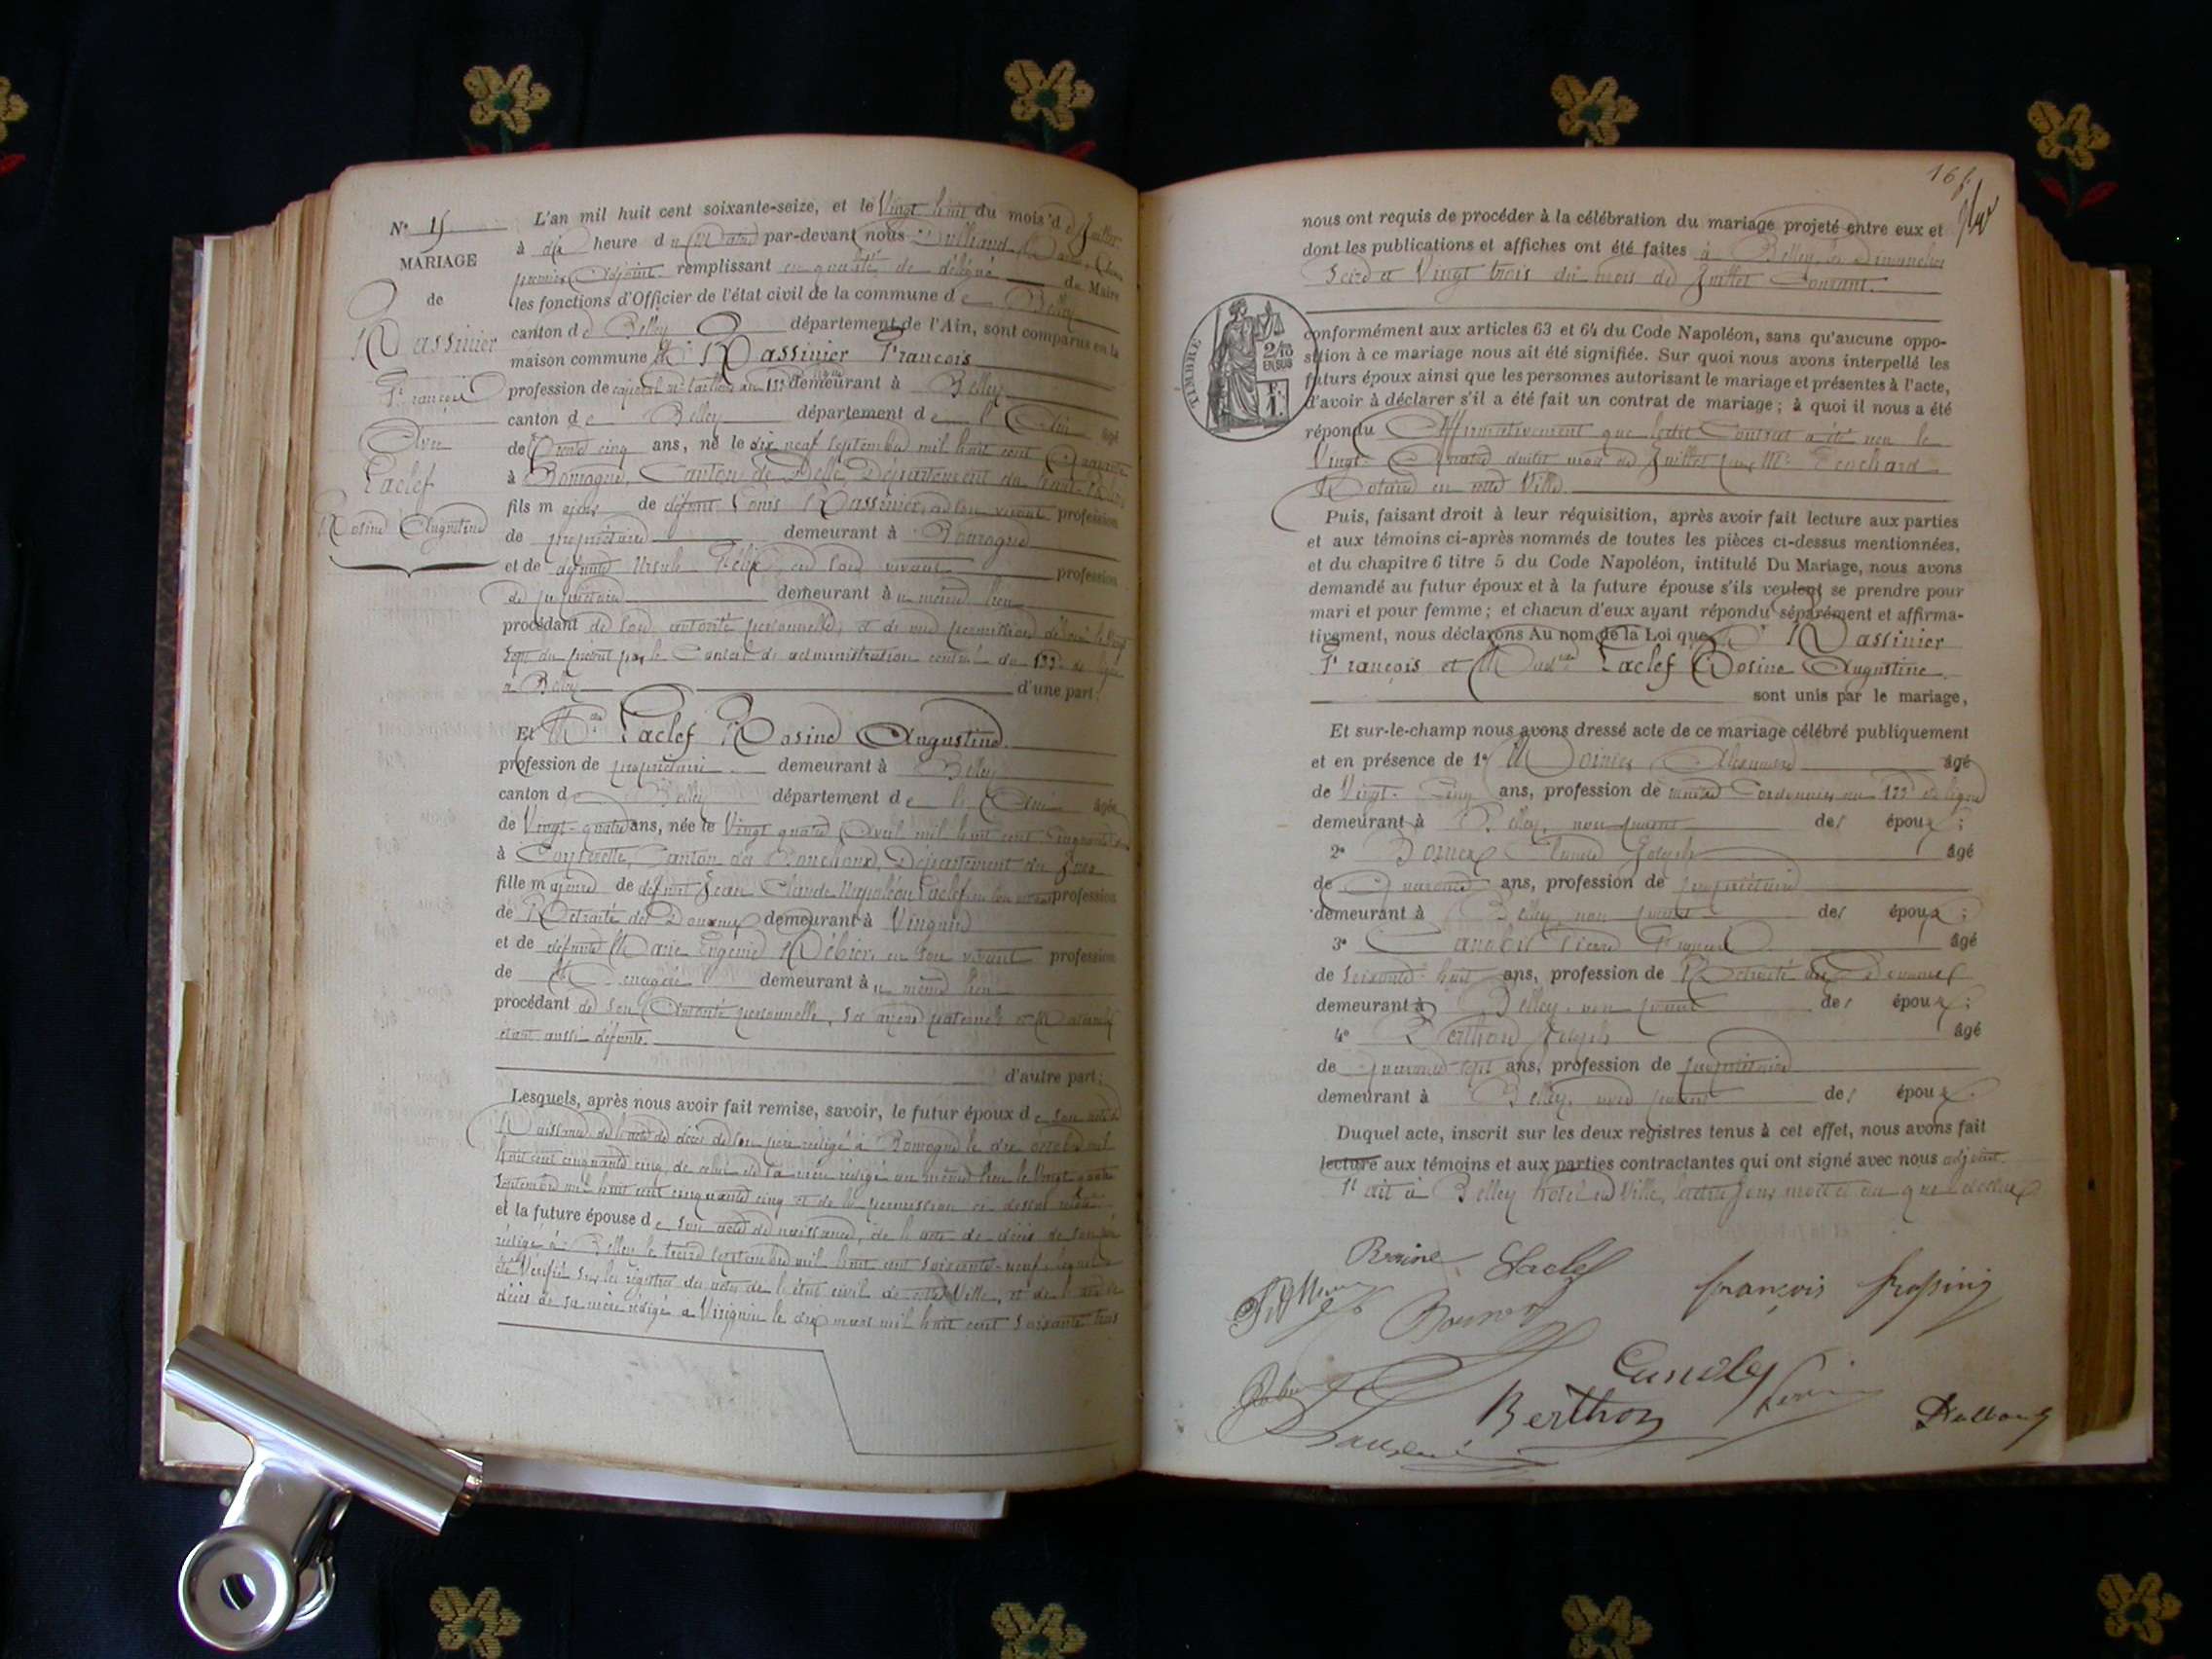 N° 15
MARIAGE
de
Rassinier
François
Avec
Laclef
Rosine Augustine
L'an mil huit cent soixante-seize, et le Vingt huit du mois de Juillet
à dix heure du Matin par-devant nous
premier Adjoint remplissant en qualité de délégué de Maire
les fonctions d'Officier de l'état civil de la commune de Belley
canton de Belley département de l'Ain, sont comparus en la
maison commune Mr Rassinier François
profession de caporal Me tailleur au 133 demeurant à Belley
canton de Belley département de l'Ain âgé
de trente cinq ans, né le dix neuf septembre mil huit cent Quarante
à Bourogne, Canton de Delle, Département du haut-Rhin
fils majeur de défunt Louis Rassinier, en son vivant profession
de propriétaire demeurant à Bourogne
et de défunte Ursule Félix, en son vivant profession
de propriétaire demeurant au même lieu
procédant de son autorité personnelle, et de une permission délivrée le Vingt
sept du présent par le Conseil d'administration central du 133e de ligne
à Belley d'une part;
Et Mlle Laclef Rosine Augustine
profession de propriétaire demeurant à Belley
canton de Belley département de l'Ain âgée
de Vingt-quatre ans, née le Vingt quatre Avril mil huit cent Cinquante deux
à Coyserette, Canton des Bouchoux, Département du Jura
fille majeure de défunt Jean Claude Napoléon Laclef en son vivant profession
de Retraité des Douanes demeurant à Virignin
et de défunte Marie Eugénie en son vivant profession
de Ménagère demeurant au même lieu
procédant de son Autorité personnelle, ses ayeux paternels et Maternels
étant aussi défunts.
d'autre part;
Lesquels, après nous avoir fait remise, savoir, le futur époux de son acte de
Naissance, de l'acte de décès de son père rédigé à Bourogne le dix octobre mil
huit cent cinquante cinq, de celui de sa mère rédigé au même lieu le Vingt quatre
Septembre mil huit cent cinquante cinq et de la permission ci dessus relatée
et la future épouse de son acte de naissance, de l'acte de décès de son père
rédigé à Belley le treize septembre mil huit cent soixante-neuf, lequel a
été Vérifié sur les registres des actes de l'état civil de cette Ville, et de l'acte de
décès de sa mère rédigé à Virignin le dix mars mil huit cent soixante trois
nous ont requis de procéder à la célébration du mariage projeté entre eux et
dont les publications et affiches ont été faites à Belley, les Dimanches
Seize et Vingt trois du mois de Juillet Courant.
TIMBRE
2/10
EN SUS
conformément aux articles 63 et 64 du Code Napoléon, sans qu'aucune oppo-
sition à ce mariage nous ait été signifiée. Sur quoi nous avons interpellé les
futurs époux ainsi que les personnes autorisant le mariage et présentes à l'acte,
d'avoir à déclarer s'il a été fait un contrat de mariage; à quoi il nous a été
répondu Affirmativement que ledit Contrat a été reçu le
Vingt-Quatre dudit mois de Juillet par Me
Notaire en cette Ville.
Puis, faisant droit à leur réquisition, après avoir fait lecture aux parties
et aux témoins ci-après nommés de toutes les pièces ci-dessus mentionnées,
et du chapitre 6 titre 5 du Code Napoléon, intitulé Du Mariage, nous avons
demandé au futur époux et à la future épouse s'ils veulent se prendre pour
mari et pour femme; et chacun d'eux ayant répondu séparément et affirma-
tivement, nous déclarons Au nom de la Loi que Mr Rassinier
François et Mademlle Laclef Rosine Augustine
sont unis par le mariage,
Et sur-le-champ nous avons dressé acte de ce mariage célébré publiquement
et en présence de 1° Alexandre âgé
de Vingt-Cinq ans, profession de maître Cordonnier au 133 de ligne
demeurant à Belley, non parent des époux;
2° Claude Joseph âgé
de Quarante ans, profession de propriétaire
demeurant à Belley, non parent des époux;
3° Pierre François âgé
de Soixante-huit ans, profession de Retraité des Douanes
demeurant à Belley, non parent des époux;
4° Berthon Joseph âgé
de quarante sept ans, profession de propriétaire
demeurant à Belley, non parent des époux.
Duquel acte, inscrit sur les deux registres tenus à cet effet, nous avons fait
lecture aux témoins et aux parties contractantes qui ont signé avec nous adjoint.
Fait à Belley hôtel de Ville, lesdits jour mois et an que dessus
Rosine Laclef
François
Berthon